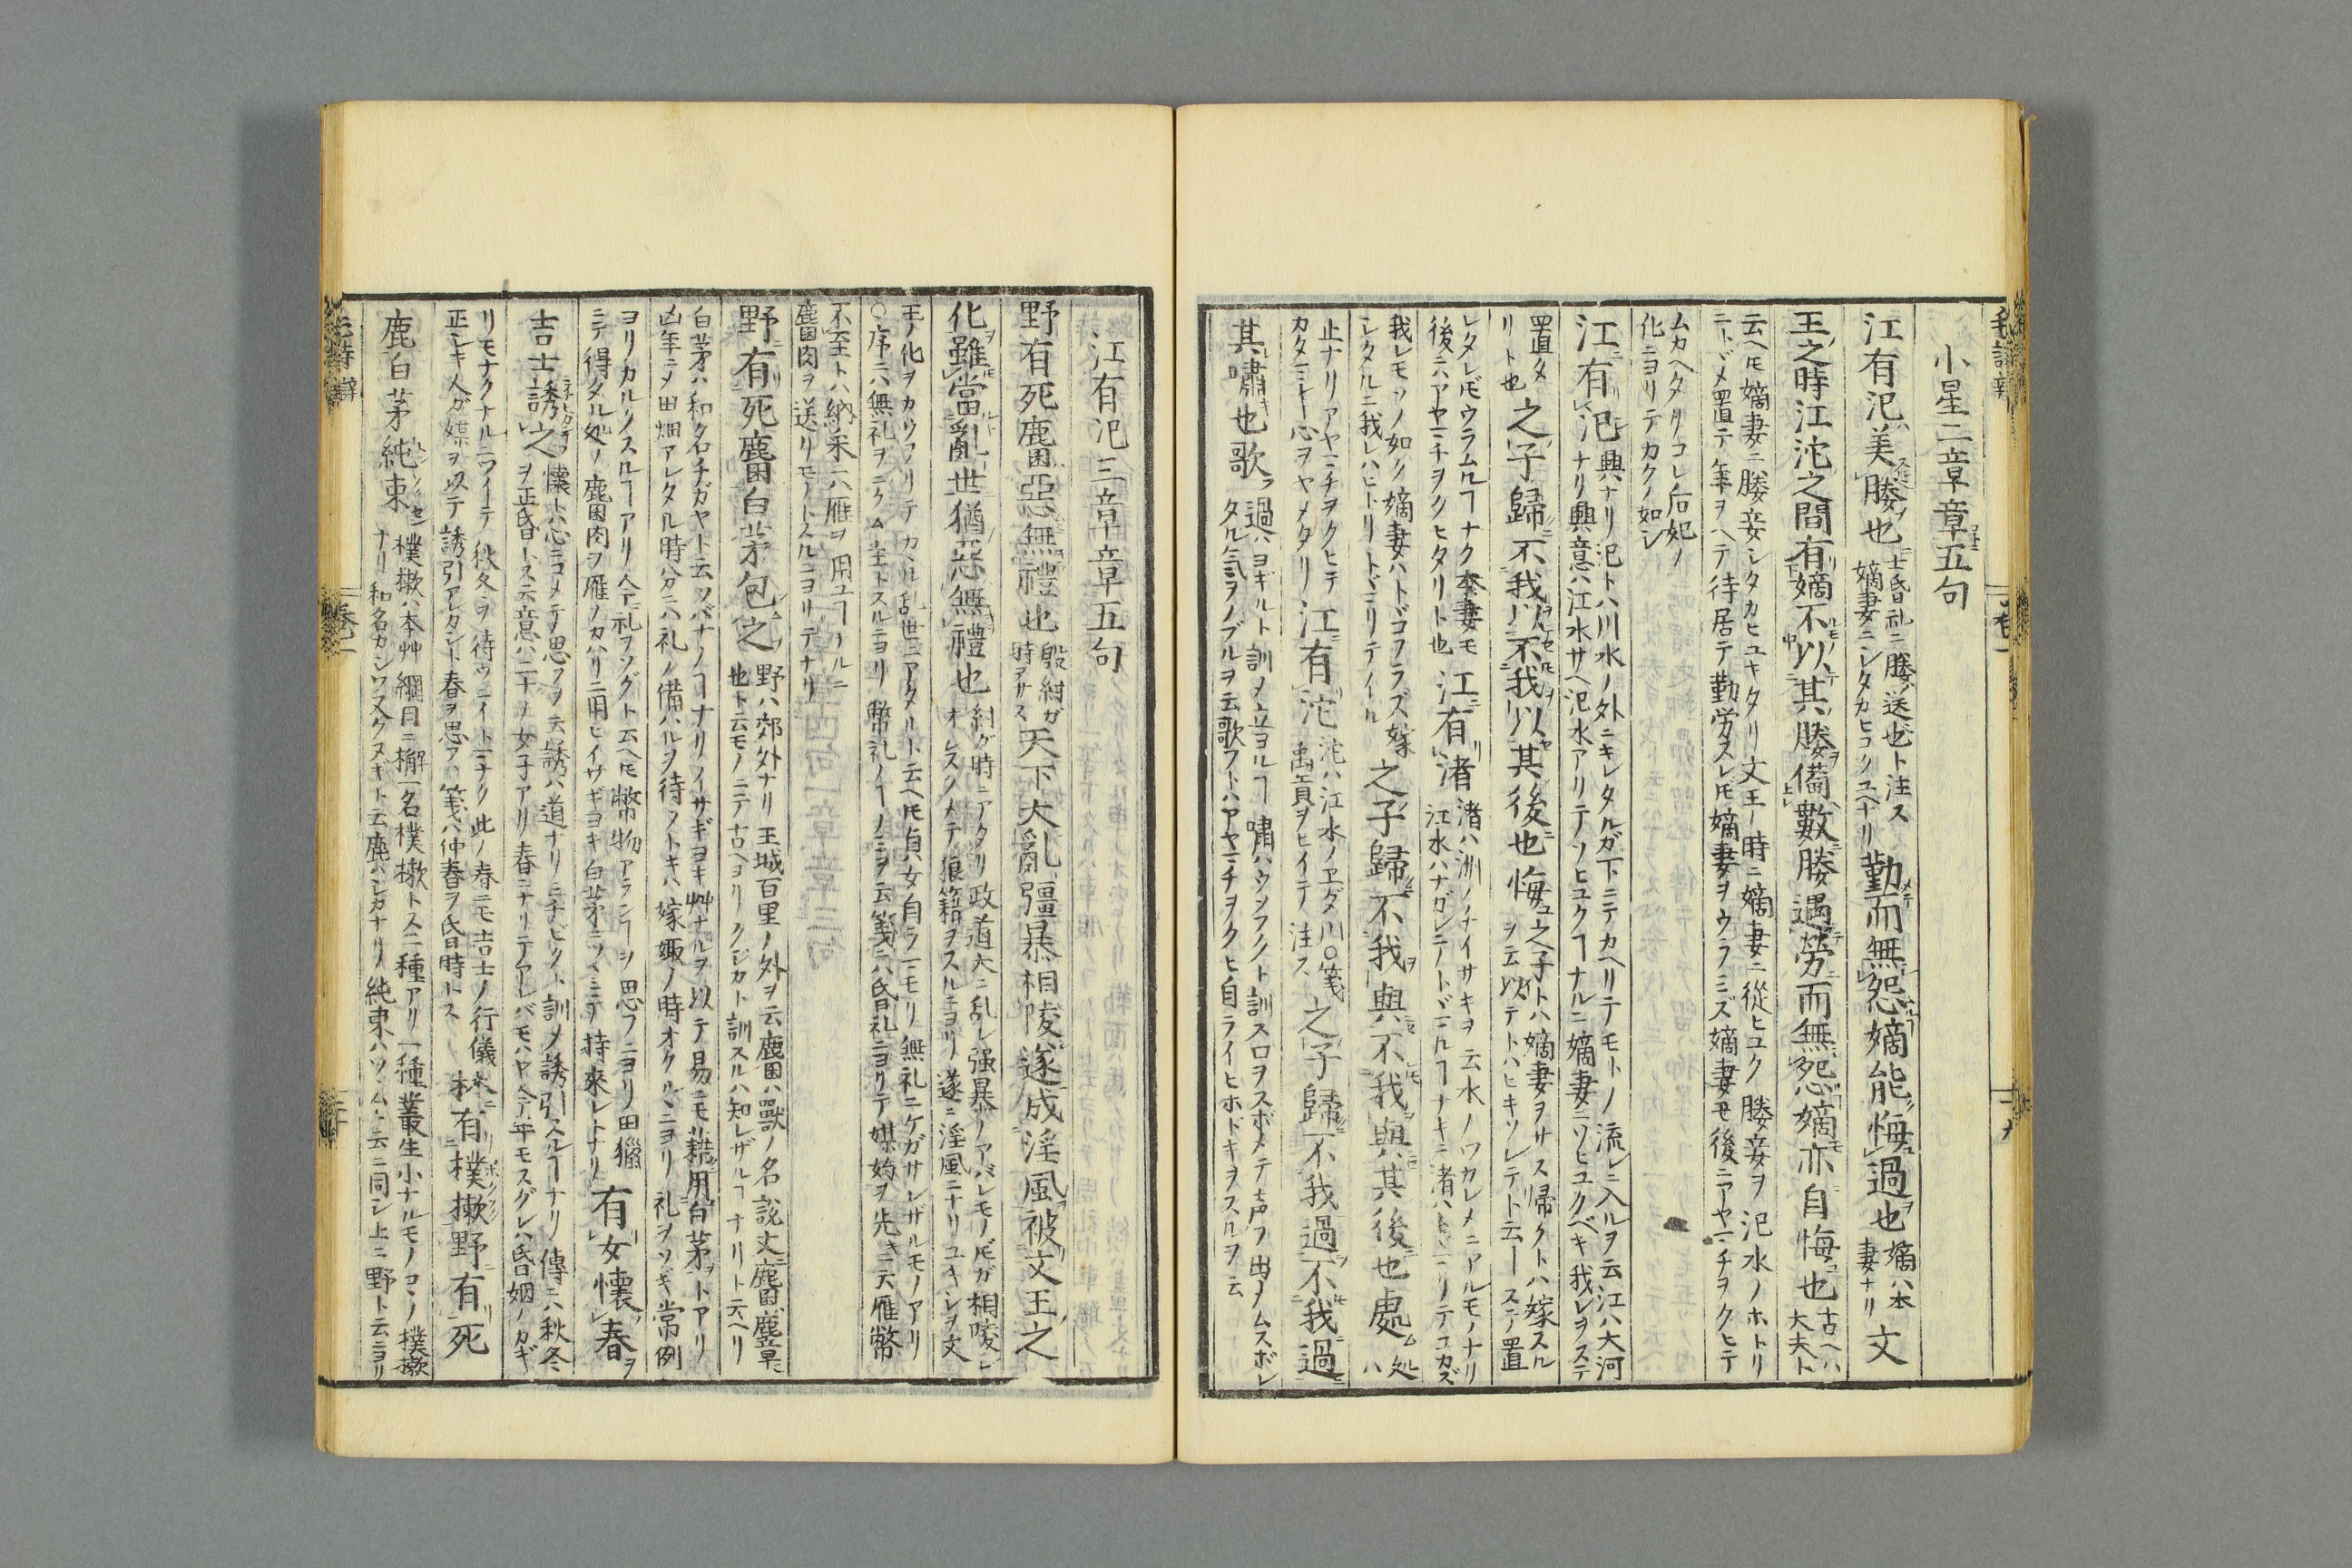 小星二章章五句
江有汜美媵也
士昏礼ニ媵ハ送也ト注ス
嫡妻ニシタカヒユクユヘナリ
勤而無怨嫡能悔過也
嫡ハ本
妻ナリ
文
王之時江沱之間有嫡不以其媵備數媵遇勞而無怨嫡亦自悔也
古ヘハ
大夫ト
云ヘ𪜈嫡妻ニ媵妾シタカヒユキタリ文王ノ時ニ嫡妻ニ從ヒユク媵妾ヲ汜水ノホトリ
ニトヾメ置テ年ヲヘテ待居テ勤労スレ𪜈嫡妻ヲウラミズ嫡妻モ後ニアヤマチヲクヒテ
ムカヘタリコレ后妃ノ
化ニヨリテカクノ如シ
江有汜
興ナリ汜トハ川水ノ外ニキレタルガ下ニテカヘリテモトノ流レニ入ルヲ云江ハ大河
ナリ興意ハ江水サヘ汜水アリテソヒユクヿナルニ嫡妻ニソヒユクベキ我レヲステ
置タ
リト也
之子歸不我以不我以其後也悔
之子トハ嫡妻ヲサス帰クトハ嫁スル
ヲ云以テトハヒキツレテト云ーステ置
レタレ𪜈ウラムルヿナク本妻モ
後ニハアヤマチヲクヒタリト也
江有渚
渚ハ洲ノチイサキヲ云水ノワカレメニアルモノナリ
我レモソノ如ク嫡妻ハトヾコフラズ嫁
シタルニ我レハヒトリトヾマリテイール
之子歸不我與不我與其後也處
止ナリアヤマチヲクヒテ
カタミノ心ヲヤメタリ
江有沱
沱ハ江水ノヱダ川〇箋
禹貢ヲヒイテ注ス
之子歸不我過不我過
其嘯也歌
過ハヨギルト訓メ立ヨルヿ嘯ハウソフクト訓ス口ヲスボメテ声フ出メムスボレ
タル気ヲノブルヲ云歌フトハアヤマチヲクヒ自ライヒホドキヲスルヲ云
江有汜三章章五句
野有死麕惡無禮也
殷紂ガ
時ヲサス
天下大亂彊暴相陵遂成淫風被文王之
化雖當亂世猶惡無禮也
紂ガ時ニアタリ政道大ニ乱レ强暴ノアバレモノ𪜈ガ相陵シ
オレスクメテ狼籍ヲスルニヨリ遂ニ淫風ニナリユキシヲ文
王ノ化ヲカウフリテカヽル乱世ニアタルト云ヘ𪜈貞女自ラマモリ無礼ニケガサレザルモノアリ
〇序ニハ無礼ヲニクム主トスルニヨリ幣礼ノヿノミヲ云箋ニハ昏礼ニヨリテ媒妁ヲ先キニ云雁幣
不至トハ納采ニハ雁ヲ用ユヿノルニ
麕肉ヲ送リモノトスルニヨリテナリ
野有死麕白茅包之
野ハ郊外ナリ王城百里ノ外ヲ云麕ハ獸ノ名說文麕麞也
也ト云モノニテ古ヘヨリクジカト訓スルハ知レザルヿナリト云ヘリ
白茅ハ和名チガヤト云ツバナノヿナリイサギヨキ艸ナルヲ以テ易ニモ藉用白茅トアリ
凶年ニメ田畑アレタル時分ニハ礼ノ備ハルヲ待フトキハ嫁娵ノ時オクルヽニヨリ礼ヲソギ常例
ヨリカルクスルヿアリ今礼ヲソグト云ヘ𪜈幣物アラマホシク思フニヨリ田獵
ニテ得タル処ノ麕肉ヲ雁ノカハリニ用ヒイサギヨキ白茅ニツヽミテ持來レトナリ
有女懷春
吉士誘之
懷トハ心ニコメテ思フヲ云誘ハ道ナリミチビクト訓メ誘引スルヿナリ傳ニハ秋冬
ヲ正昏トス云意ハ二十メ女子アリ春ニナリテアレバモハヤ今年モスグレハ昏姻ノカギ
リモナクナルニツイテ秋冬ヲ待ウニイトマナク此ノ春ニモ吉士ノ行儀
正シキ人ガ媒ヲ以テ誘引アレカシト春ヲ思フ箋ハ仲春ヲ昏時トス
林有樸樕野有死
鹿白茅純束
樸樕ハ本艸綱目ニ槲一名樸樕トス二種アリ一種叢生小ナルモノコノ樸樕
ナリ和名カシワ又クヌギト云鹿ハシカナリ純束ハツヽムト云ニ同シ上ニ野ト云ニヨリ